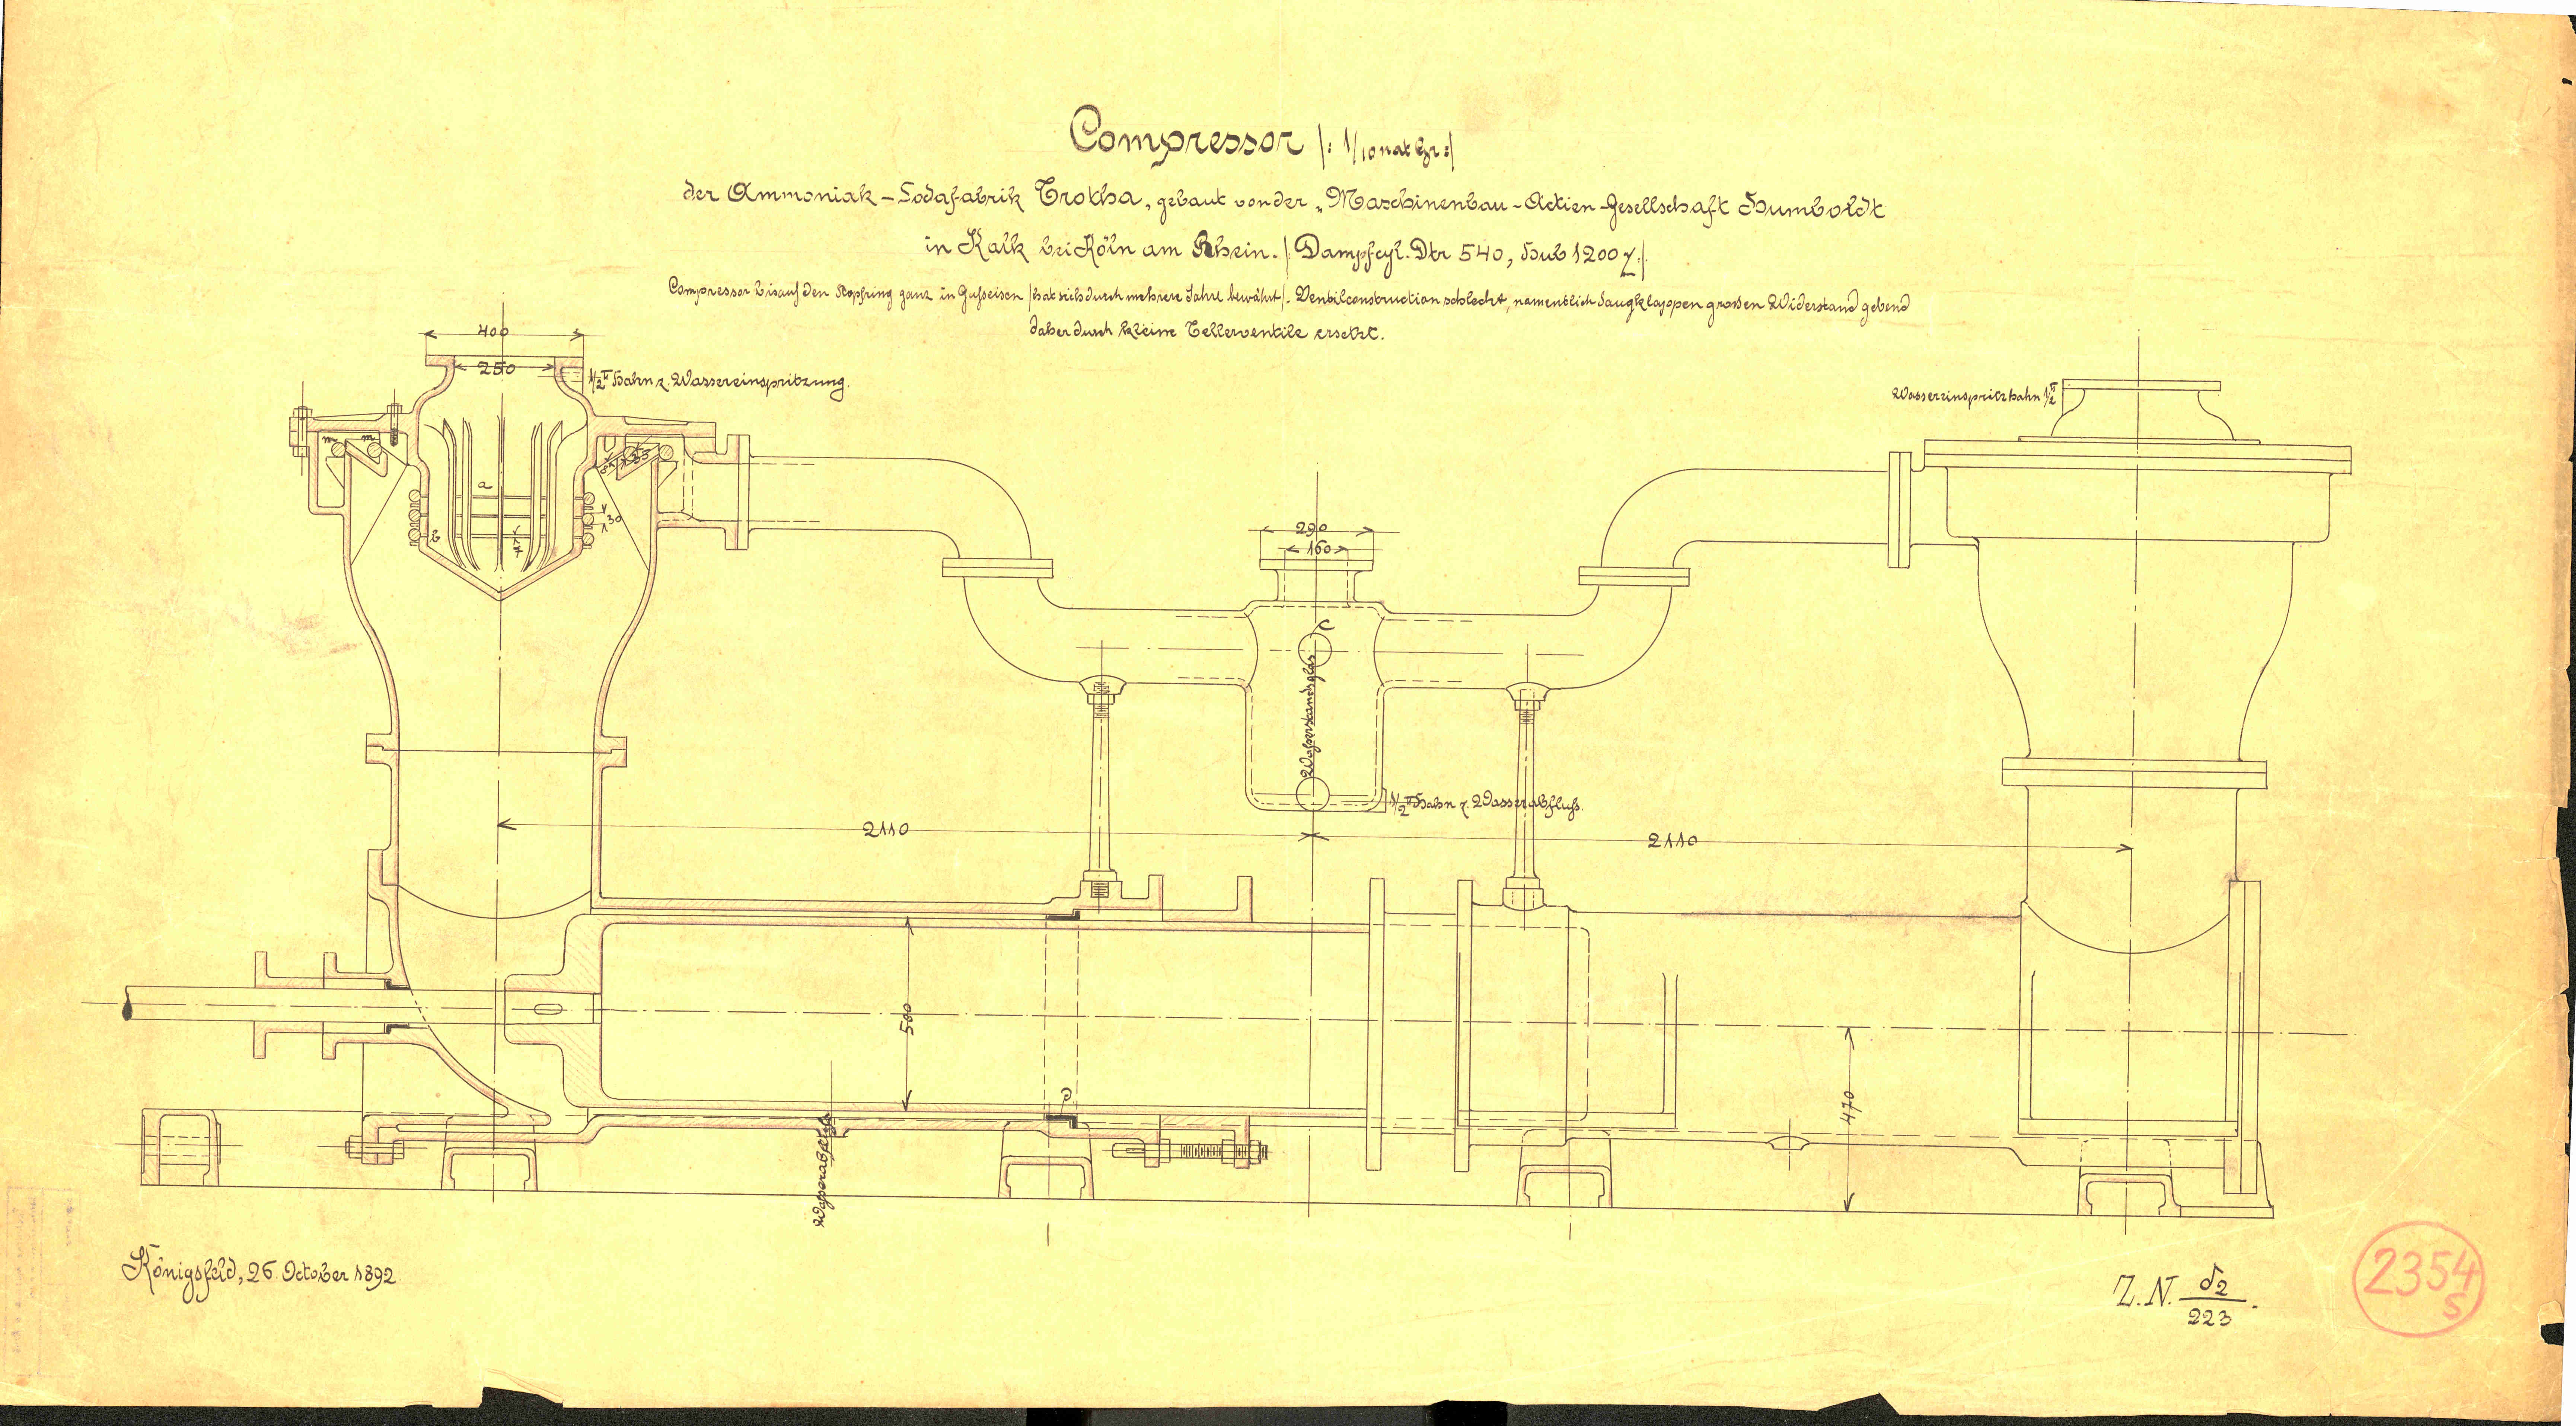 Compressor |: 1/10 nat Gr :|
der Ammoniak-Sodafabrik Trotha, gebaut von der „Maschinenbau-Actien-Gesellschaft Humboldt
in Kalk bei Köln am Rhein. |: Dampfcyl. Dtr 540, Hub 1200 :|
Compressor bis auf den Stopfring ganz in Gußeisen |: hat sich durch mehrere Jahre bewährt :|. Ventilconstruction schlecht, namentlich Saugklappen großen Widerstand gebend
daher durch kleine Tellerventile ersetzt.
400
250
1/2" Hahn z. Wassereinspritzung.
Wassereinspritzhahn 1/2"
m m
a
b
30
290
160
c
Wasserstandsglas
1/2" Hahn z. Wasserabfluß.
2110
2110
500
470
Wasserabfluß
Königsfeld, 26. October 1892
Z.N. S2/223.
2354
S